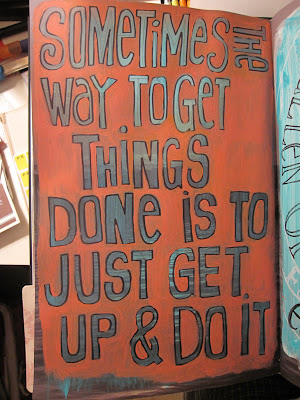 SOMETIMES THE
WAY TO GET
THINGS
DONE IS TO
JUST GET
UP & DO IT